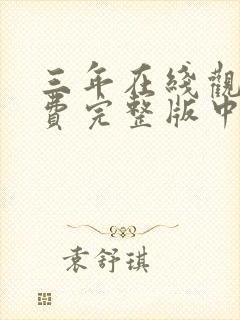 三年在綫觀
費完整版中
袁舒琪